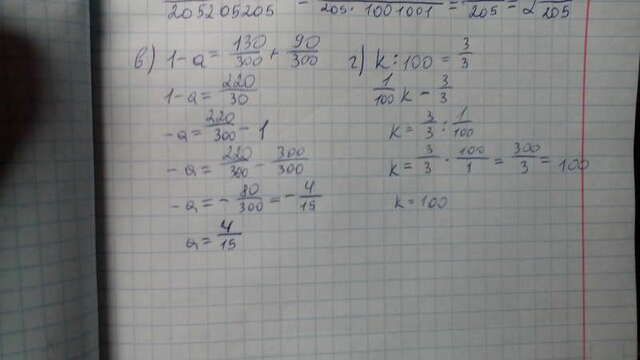 205205205 = 205·1001001 = 205 = 2 205
в) 1-a = 130/300 + 90/300
1-a = 220/30
-a = 220/300 - 1
-a = 220/300 - 300/300
-a = -80/300 = -4/15
a = 4/15
г) k:100 = 3/3
1/100 k - 3/3
k = 3/3 : 1/100
k = 3/3 · 100/1 = 300/3 = 100
k = 100